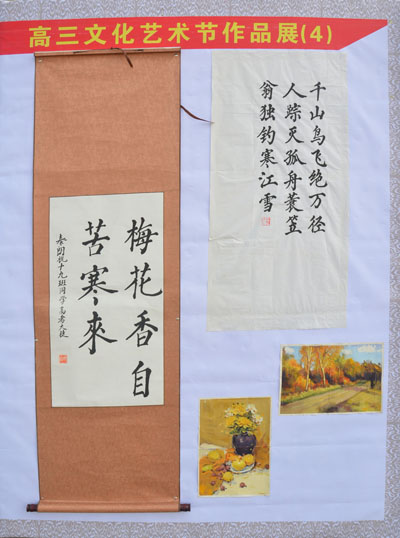 高三文化艺术节作品展(4)
梅花香自
苦寒來
祝十九班同学高考大捷
千山鸟飞绝万径
人踪灭孤舟蓑笠
翁独钓寒江雪